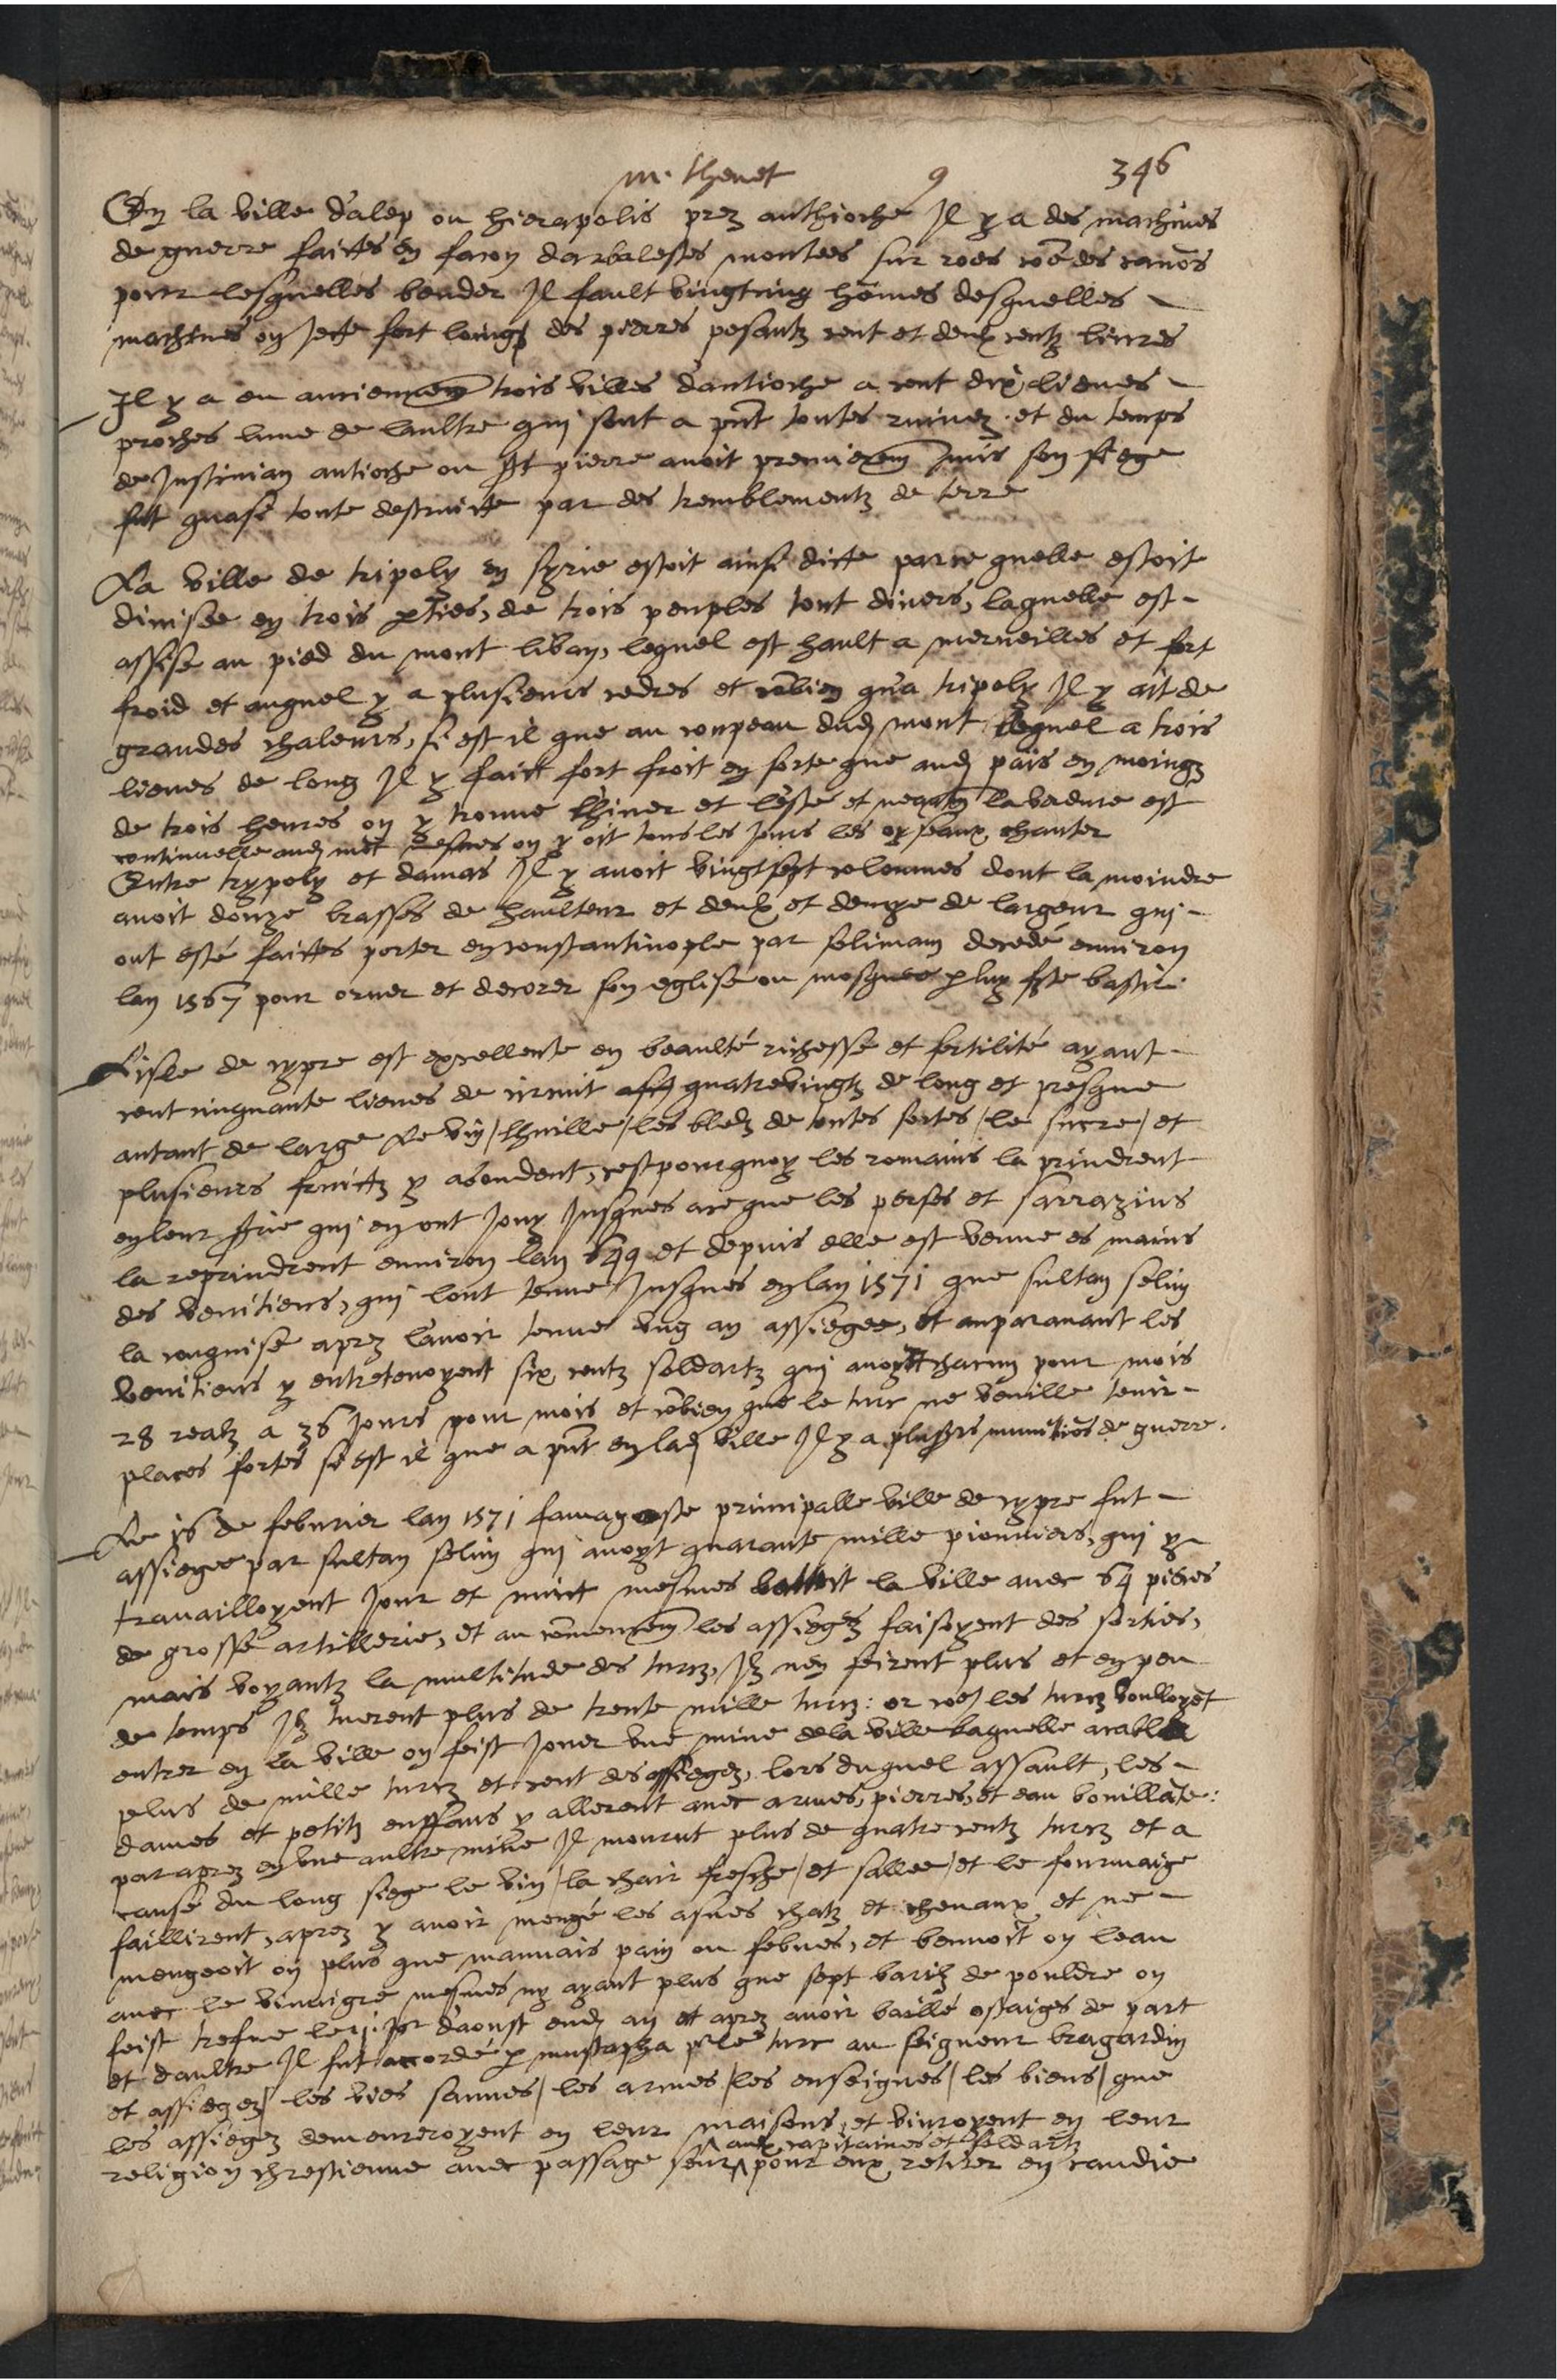 m. thevet 9 346
En la ville d'alep ou hierapolis prez anthioche Il y a des machines
de guerre faittes en facon darbalestes montees sur roes cōe des canōs
pour lesquelles bender Il fault vingtcinq hōmes desquelles
machines on Jette fort loing des pierres pesantz cent et deux centz livres
Il y a eu anciennem̄ trois villes dantioche a cent dix lieues
proches lune de laultre qui sont a pn̄t toutes ruinez. et du temps
de Justinian antioche ou st pierre avoit premierem̄ mis son siege
fut quasi toute destruitte par des tremblementz de terre
La ville de tripoly en syrie estoit ainsi ditte parce quelle estoit
divisee en trois pties, de trois peuples tout divers, laquelle est
assise au pied du mont liban, lequel est hault a merveilles et fort
froid et auquel y a plusieurs cedres et cōbien qua tripoly Il y ait de
grandes chaleurs, si est il que au coupeau dud mont lequel a trois
lieues de long Il y faict fort froit en sorte que aud païs en moingz
de trois heures on y trouve lhiver et lesté et neantm̄ la verdure est
continuelle aud mōt mesmes on y oit tous les Jours les oyseaux chanter
Entre trypoly et damas Il y avoit vingtsept colonnes dont la moindre
avoit douze brasses de haulteur et deux et demye de largeur qui
ont esté faittes porter en constantinople par soliman decedé environ
lan 1567 pour orner et decorer son eglise ou mosquee p luy fte bastir.
Lisle de cypre est excellente en beaulté richesse et fertilité ayant
cent cinquante lieues de circuit quatrevingtz de long et presque
autant de large Le vin / lhuille / les bledz de toutes sortes / le sucre / et
plusieurs fruictz y abondent, cest pourquoy les romains la prindrent
en leur qui en ont Jouy Jusques ace que les perses et sarrazins
la reprindrent environ lan 649 et depuis elle est venue es mains
des venitiens, qui lont tenue Jusques en lan 1571 que sultan selim
la conquise aprez lavoir tenue ung an assiegee, et auparavant les
venitiens y entretenoyent six centz soldartz qui avoyēt chacun pour mois
28 realz a 36 Jours pour mois et cōbien que le turc ne veuille tenir
places fortes si est il que a pn̄t en lad ville Il y a plusrs munitiōs de guerre.
Le 16 de febvrier lan 1571 famagoste principalle ville de cypre fut
assiegee par sultan selim qui avoyt quarante mille pionniers, qui y
travailloyent Jour et nuict mesmes battoit la ville avec 64 pieces
de grosse artillerie, et au cōmencem̄ les assiegez faisoyent des sorties,
mais voyantz la multitude des turcz, Ilz nen feirent plus et en peu
de temps Ilz tuerent plus de trente mille turcz: or coē les turcz voulloyēt
entrer en la ville on feist Jouer une mine dela ville laquelle acabla
plus de mille turcz et cent des assiegez, lors duquel assault, les
dames et petitz enffans y allerent avec armes, pierres, et eau bouillāte:
par aprez en une aultre mine Il mourut plus de quatre centz turcz et a
cause du long siege le vin / la chair fresche / et sallee / et le fourmaige
faillirent, aprez y avoir mengé les asnes chatz et chevaux et ne
mengeoit on plus que mauvais pain ou febves, et beuvoit on leau
avec le vinaigre mesmes ny ayant plus que sept barilz de pouldre on
feist trefve le j. Jor daoust eud an et aprez avoir baillé ostaiges de part
et daultre Il fut accordé p mustapha pr le turc au seigneur bragardin
et assiegez / les vies sauves / les armes / les enseignes / les biens / que
les assiegez demoureroyent en leur maisons, et vivroyent en leur
religion chrestienne avec passage seur ^ aux capitaines et soldartz pour eux retirer en candie